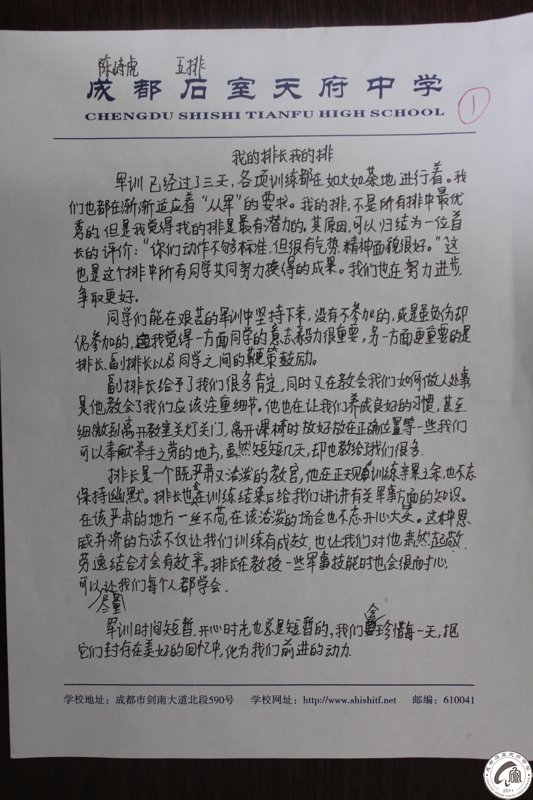 陈诗虎 五排
成都石室天府中学
CHENGDU SHISHI TIANFU HIGH SCHOOL
1
我的排长我的排
军训已经过了三天，各项训练都在如火如荼地进行着。我
们也都在渐渐适应着“从军”的要求。我的排，不是所有排中最优
秀的，但是我觉得我的排是最有潜力的。其原因，可以归结为一位首
长的评价：“你们动作不够标准，但很有气势，精神面貌很好。”这
也是这个排中所有同学共同努力换得的成果。我们也在努力进步，
争取更好。
同学们能在艰苦的军训中坚持下来，没有不参加的，或是虽负伤却
仍参加的，我觉得一方面同学的意志毅力很重要，另一方面更重要的是
排长、副排长以及同学之间的鞭策鼓励。
副排长给予了我们很多肯定，同时又在教会我们如何做人处事
是他教会了我们应该注重细节。他也在让我们养成良好的习惯，甚至
细微到离开教室关灯关门，离开课椅时放好放在正确位置等一些我们
可以奉献举手之劳的地方，虽然短短几天，却也教给了我们很多。
排长是一个既严肃又活泼的教官，他在正天训练辛累之余，也不忘
保持幽默。排长也在训练结束后给我们讲讲有关军事方面的知识。
在该严肃的地方一丝不苟，在该活泼的场合也不忘开心大笑。这种恩
威并济的方法不仅让我们训练有成效，也让我们对他肃然起敬，
劳逸结合才会有效率。排长在教授一些军事技能时也会很耐心，
尽量
可以让我们每个人都学会。
军训时间短暂，开心时光也总是短暂的，我们会珍惜每一天，把
它们封存在美好的回忆中，化为我们前进的动力.
学校地址：成都市剑南大道北段590号 学校网址：http://www.shishitf.net 邮编：610041
2011